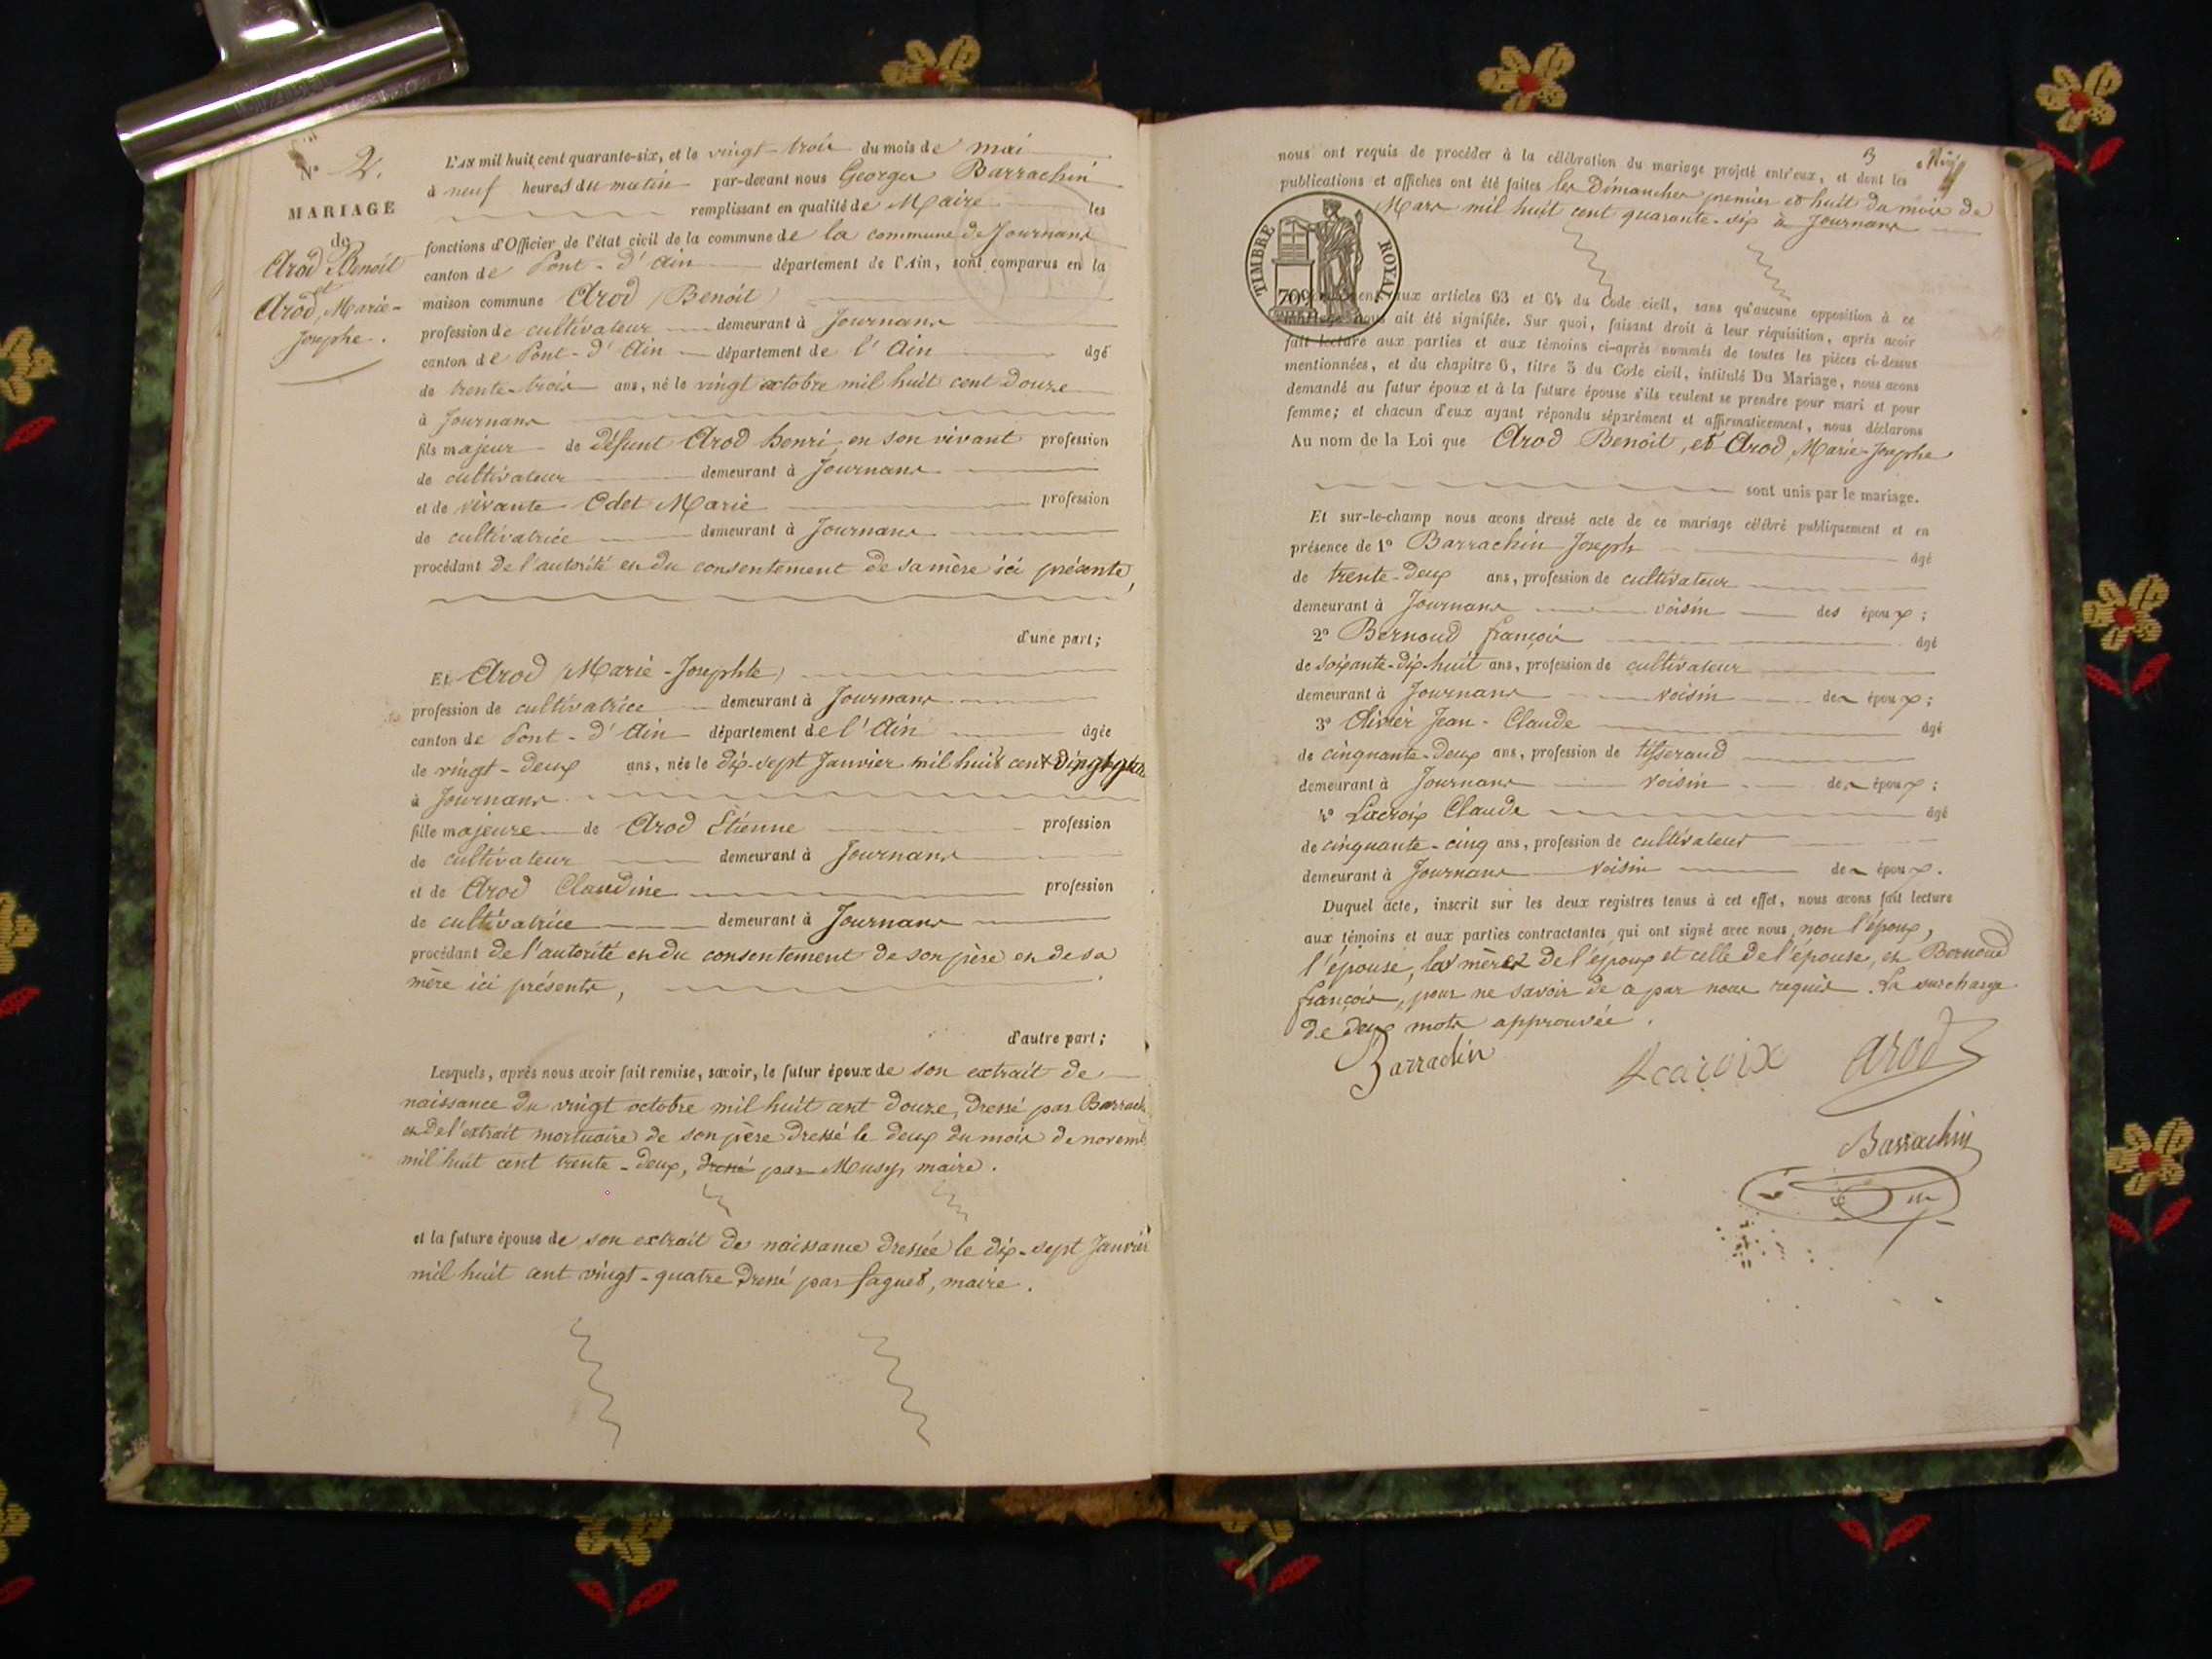 N° 2.
MARIAGE
de
Arod Benoît
et
Arod, Marie-
Josephe.
L'AN mil huit cent quarante-six, et le vingt-trois du mois de mai
à neuf heures du matin par-devant nous Georges Barrachin
remplissant en qualité de Maire les
fonctions d'Officier de l'état civil de la commune de la commune de Journans
canton de Pont-d'Ain département de l'Ain, sont comparus en la
maison commune Arod (Benoît)
profession de cultivateur demeurant à Journans
canton de Pont-d'Ain département de l'Ain âgé
de trente-trois ans, né le vingt octobre mil huit cent douze
à Journans
fils majeur de défunt Arod henri, en son vivant profession
de cultivateur demeurant à Journans
et de vivante Odet Marie profession
de cultivatrice demeurant à Journans
procédant de l'autorité et du consentement de sa mère ici présente,
d'une part;
Et Arod (Marie-Josephte)
profession de cultivatrice demeurant à Journans
canton de Pont-d'Ain département de l'Ain âgée
de vingt-deux ans, née le dix-sept Janvier mil huit cent vingt-quatre
à Journans
fille majeure de Arod Etienne profession
de cultivateur demeurant à Journans
et de Arod Claudine profession
de cultivatrice demeurant à Journans
procédant de l'autorité et du consentement de son père et de sa
mère ici présents,
d'autre part;
Lesquels, après nous avoir fait remise, savoir, le futur époux de son extrait de
naissance du vingt octobre mil huit cent douze, dressé par Barrach
et de l'extrait mortuaire de son père dressé le deux du mois de novemb
mil huit cent trente-deux, dressé par Musy, maire.
et la future épouse de son extrait de naissance dressée le dix-sept Janvier
mil huit cent vingt-quatre dressé par faguet, maire.
nous ont requis de procéder à la célébration du mariage projeté entr'eux, et dont les
publications et affiches ont été faites les Dimanches premier et huit du mois de
Mars mil huit cent quarante-six à Journans
TIMBRE ROYAL
709
aux articles 63 et 64 du Code civil, sans qu'aucune opposition à ce
mariage nous ait été signifiée. Sur quoi, faisant droit à leur réquisition, après avoir
fait lecture aux parties et aux témoins ci-après nommés de toutes les pièces ci-dessus
mentionnées, et du chapitre 6, titre 5 du Code civil, intitulé Du Mariage, nous avons
demandé au futur époux et à la future épouse s'ils veulent se prendre pour mari et pour
femme; et chacun d'eux ayant répondu séparément et affirmativement, nous déclarons
Au nom de la Loi que Arod Benoît, et Arod, Marie-Josephe
sont unis par le mariage.
Et sur-le-champ nous avons dressé acte de ce mariage célébré publiquement et en
présence de 1° Barrachin Joseph âgé
de trente-deux ans, profession de cultivateur
demeurant à Journans voisin des époux;
2° Bernoud françois âgé
de soixante-dix-huit ans, profession de cultivateur
demeurant à Journans voisin des époux;
3° Olivier Jean-Claude âgé
de cinquante-deux ans, profession de tisserand
demeurant à Journans voisin des époux;
4° Lacroix Claude âgé
de cinquante-cinq ans, profession de cultivateur
demeurant à Journans voisin des époux.
Duquel acte, inscrit sur les deux registres tenus à cet effet, nous avons fait lecture
aux témoins et aux parties contractantes qui ont signé avec nous, non l'époux,
l'épouse, la mère de l'époux et celle de l'épouse, et Bernoud
françois, pour ne savoir de ce par nous requis. La surcharge
de deux mots approuvée.
Barrachin
Lcaroix
arod
Barrachin